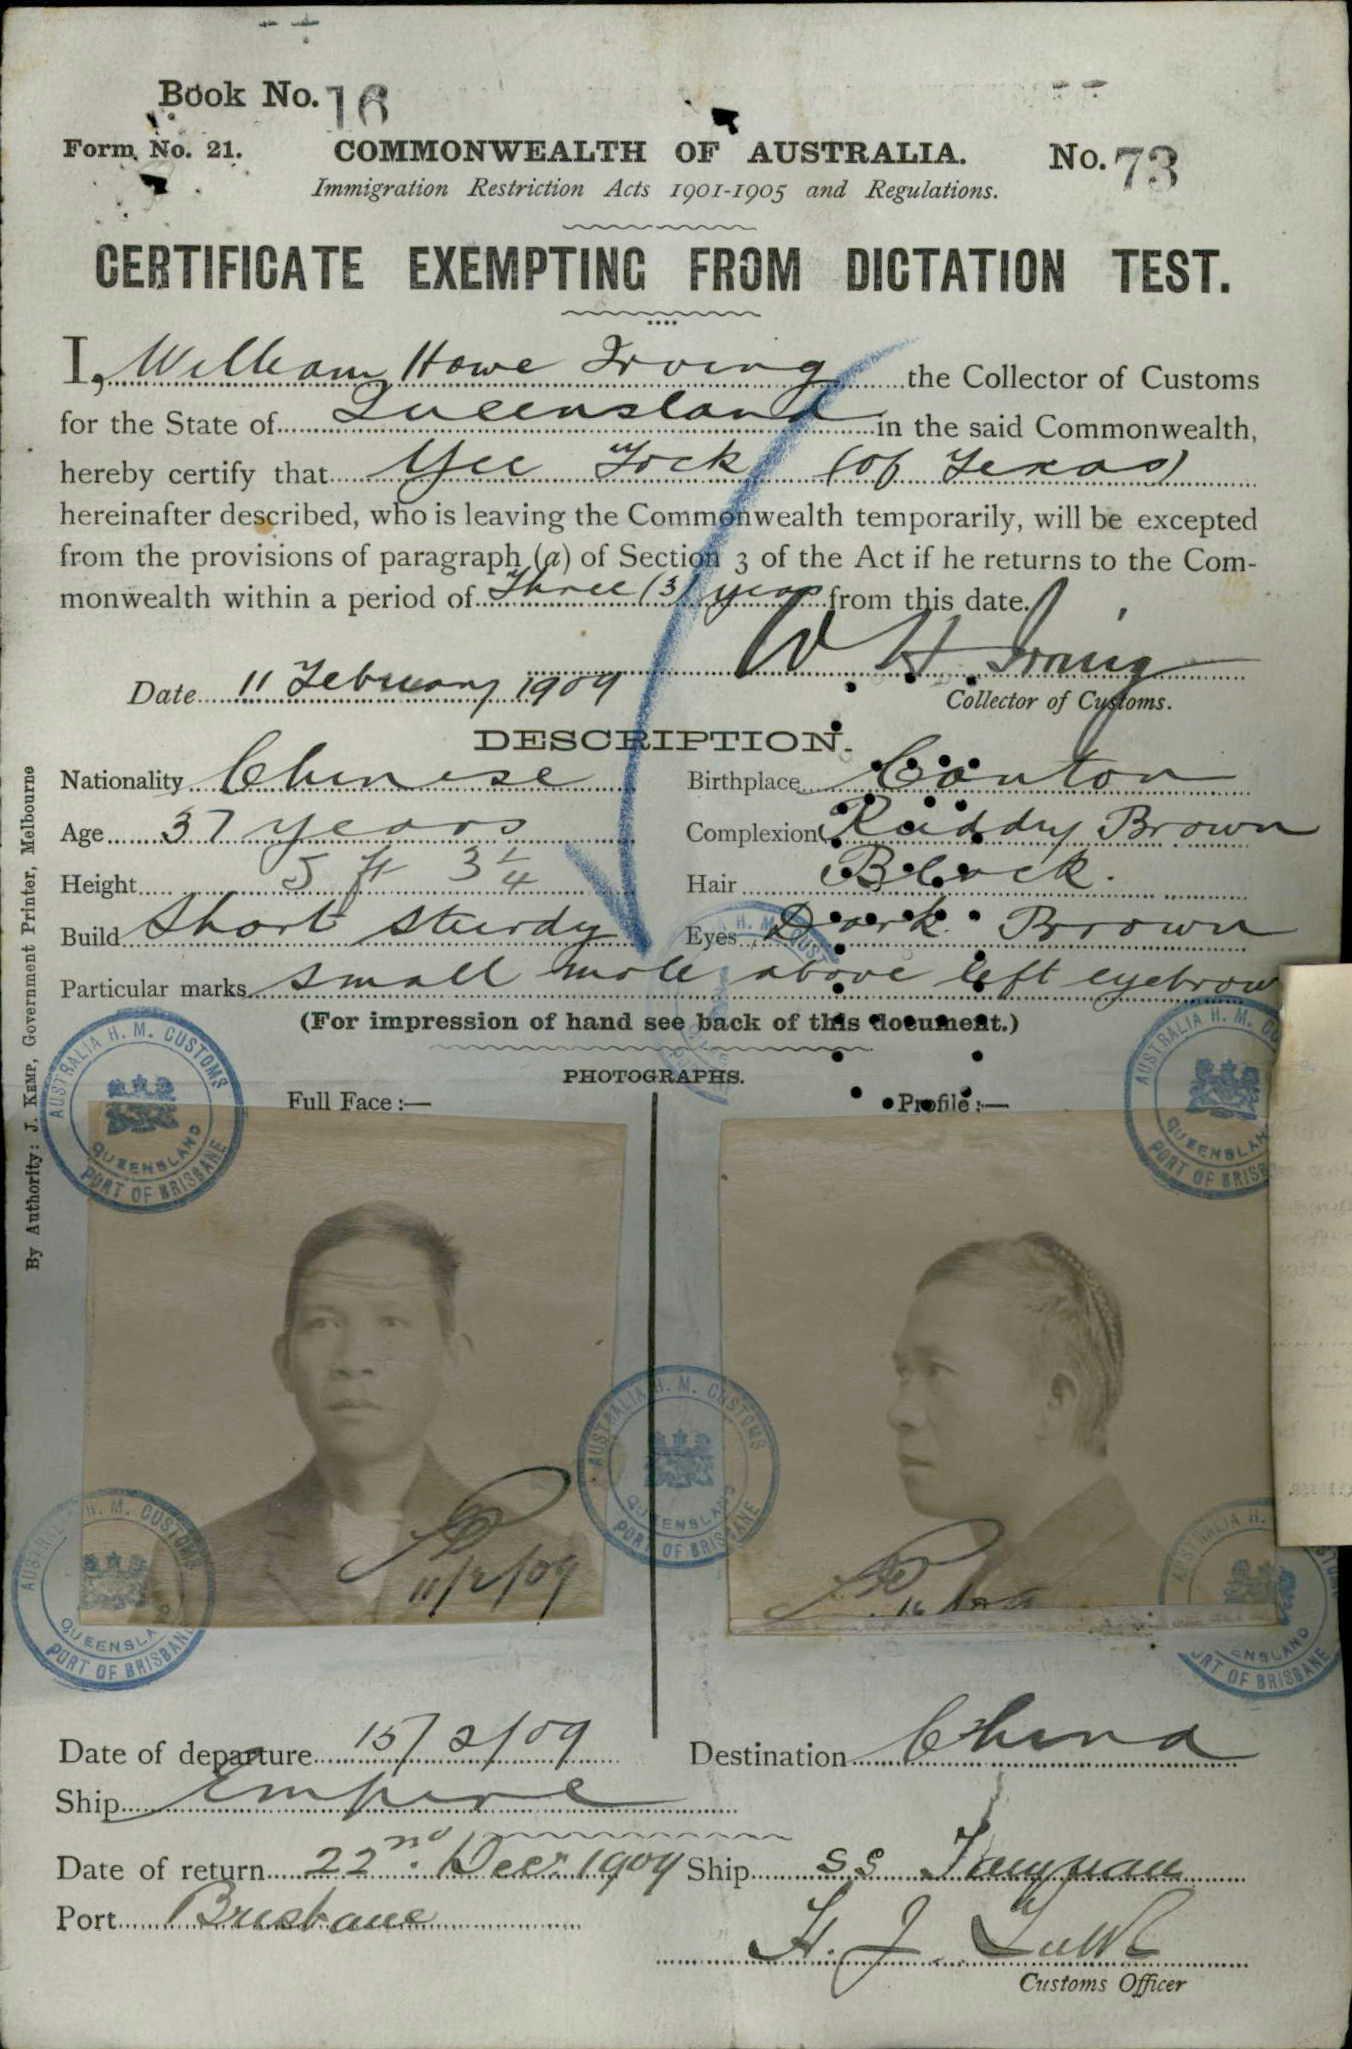 Book No. 16
Form No. 21. COMMONWEALTH OF AUSTRALIA. No. 73
Immigration Restriction Acts 1901-1905 and Regulations.
CERTIFICATE EXEMPTING FROM DICTATION TEST.
I, William Howe Irving the Collector of Customs
for the State of Queensland in the said Commonwealth,
hereby certify that Yee Fock (of Texas)
hereinafter described, who is leaving the Commonwealth temporarily, will be excepted
from the provisions of paragraph (a) of Section 3 of the Act if he returns to the Com-
monwealth within a period of Three (3) years from this date.
W H Irving
Date 11 February 1909 Collector of Customs.
DESCRIPTION.
Nationality Chinese Birthplace Canton
Age 37 years Complexion Ruddy Brown
Height 5 ft 3 1/4 Hair Black.
Build Short sturdy Eyes Dark Brown
Particular marks small mole above left eyebrow
(For impression of hand see back of this document.)
PHOTOGRAPHS.
Full Face :— Profile :—
AUSTRALIA H. M. CUSTOMS
QUEENSLAND
PORT OF BRISBANE
AUSTRALIA H. M. CU
QUEENSLAN
PORT OF BRISB
AUSTRALIA H. M. CUSTOMS
QUEENSLAND
PORT OF BRISBANE
11/2/09
H. M. CUSTOMS
QUEENSLA
PORT OF BRISBAN
AUSTRALIA H.
ENSLAND
ORT OF BRISBANE
By Authority: J. KEMP, Government Printer, Melbourne
Date of departure 15/2/09 Destination China
Ship Empire
Date of return 22nd. Decr. 1909 Ship SS Taiyuan
Port Brisbane
H. J.
Customs Officer